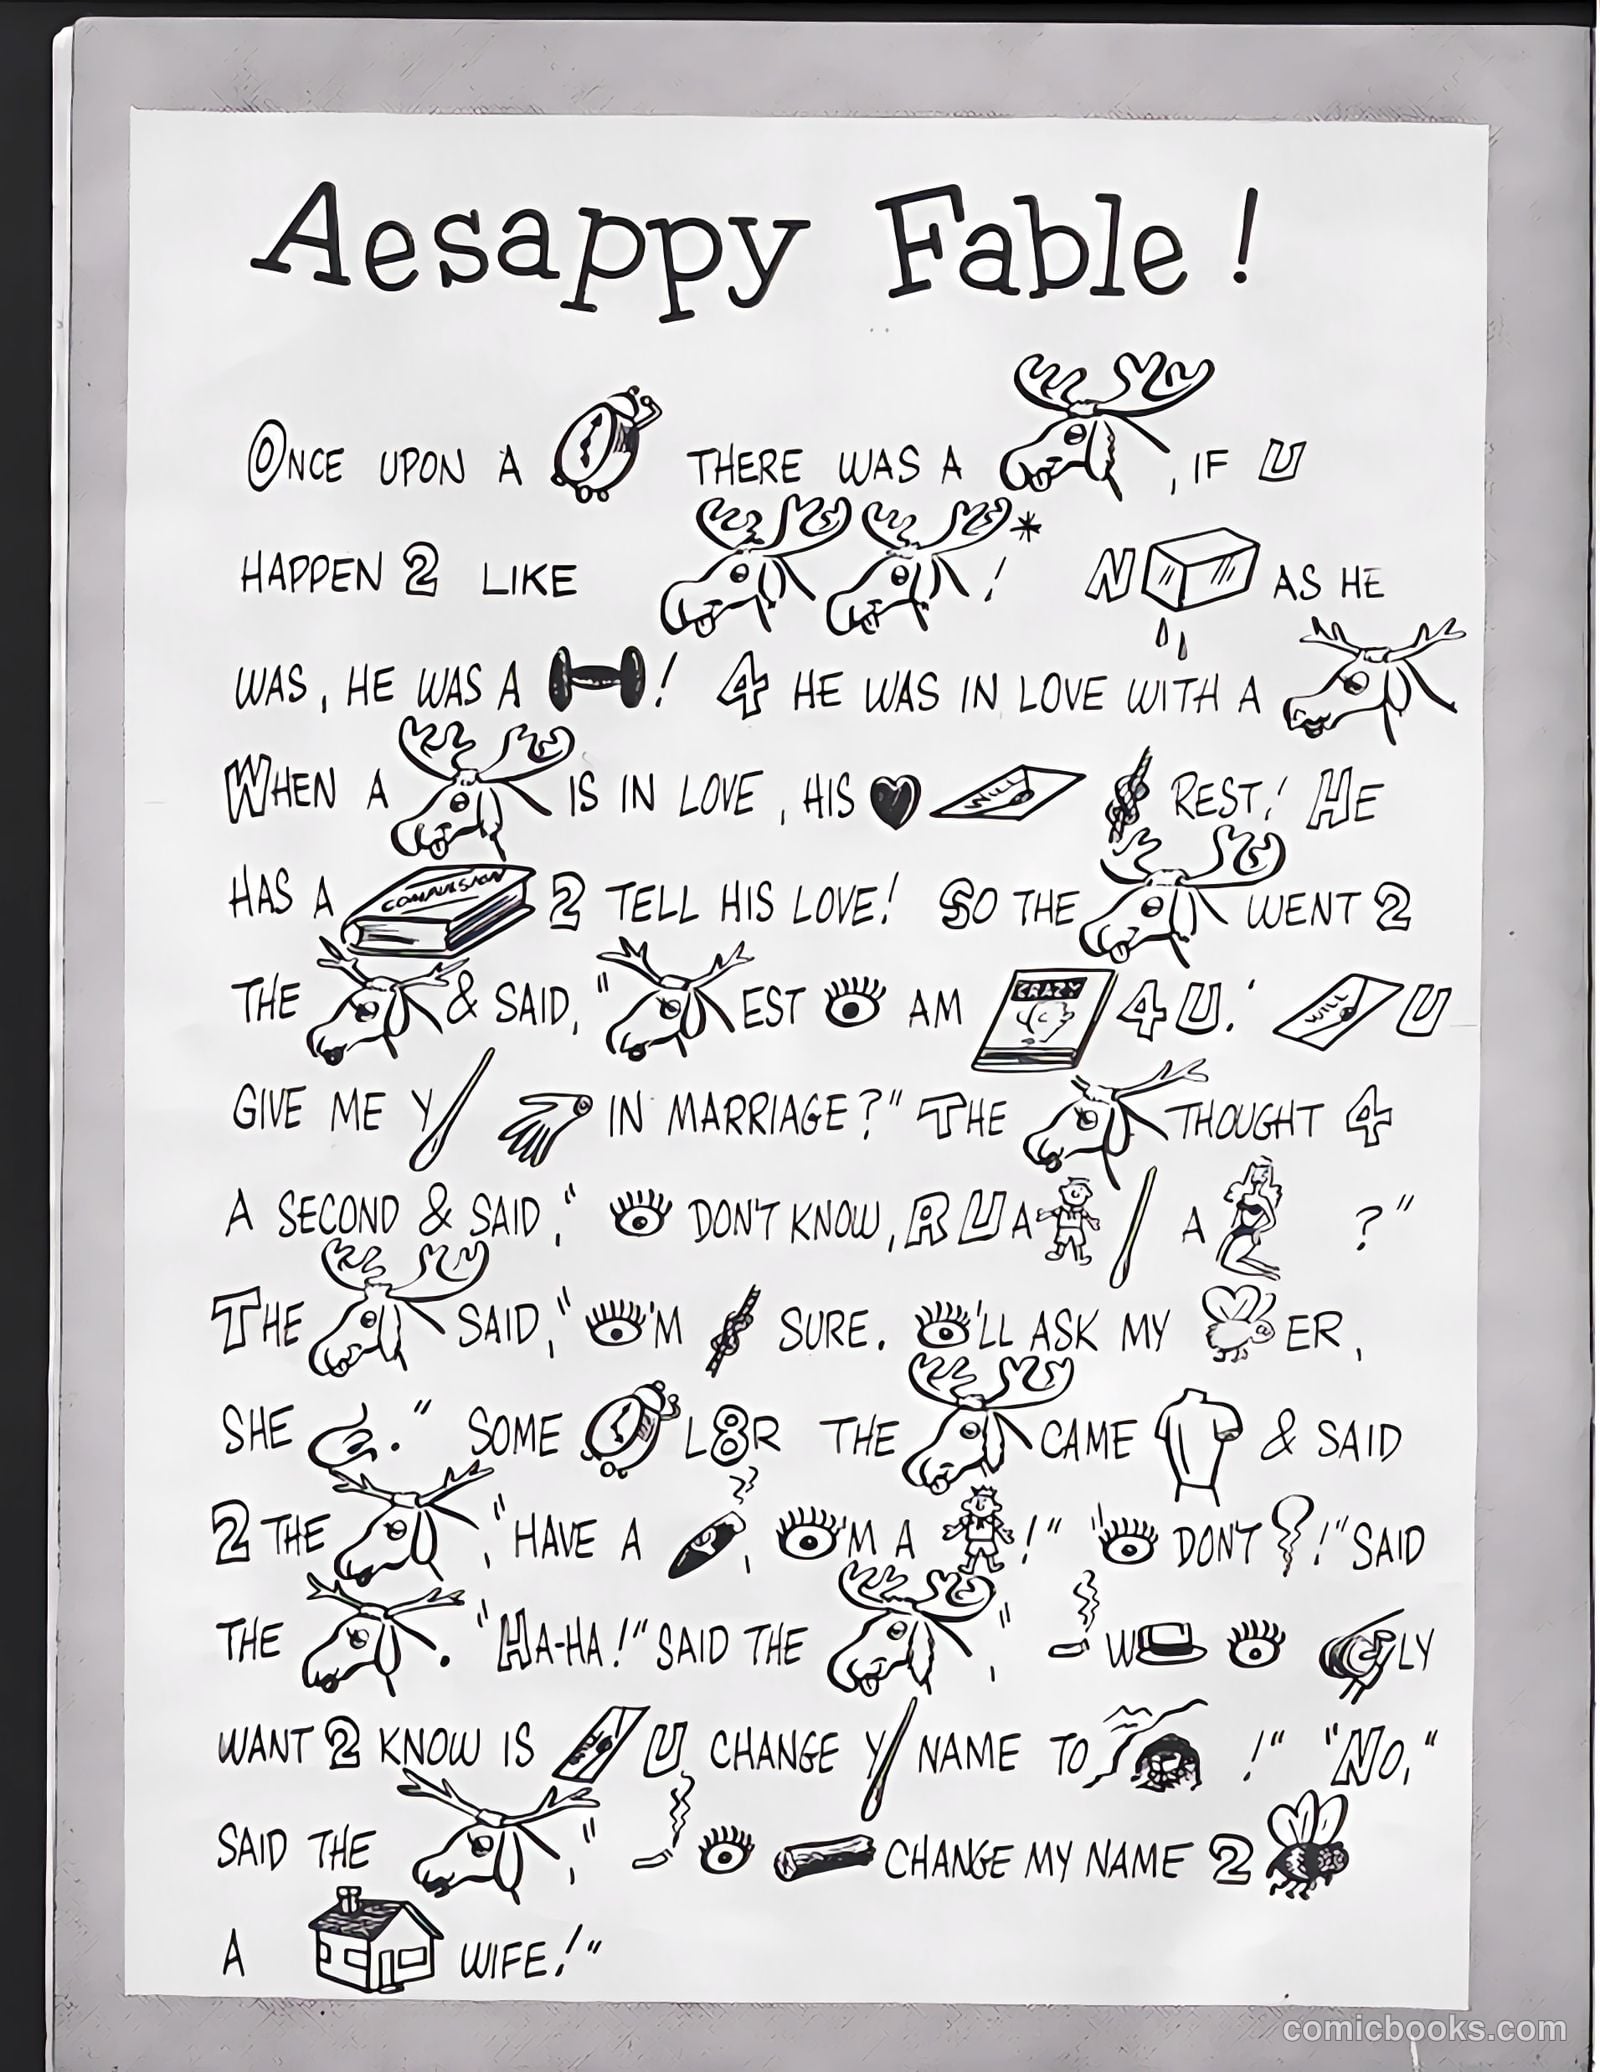 Aesappy Fable!
ONCE UPON A THERE WAS A , IF U
HAPPEN 2 LIKE *! N AS HE
WAS, HE WAS A ! 4 HE WAS IN LOVE WITH A
WHEN A IS IN LOVE, HIS WILL REST! HE
HAS A COMPULSION 2 TELL HIS LOVE! SO THE WENT 2
THE & SAID, "EST AM CRAZY 4 U! WILL U
GIVE ME Y IN MARRIAGE?" THE THOUGHT 4
A SECOND & SAID, " DON'T KNOW, R U A A ?"
THE SAID, "'M SURE. 'LL ASK MY ER,
SHE ." SOME L8R THE CAME & SAID
2 THE , "HAVE A , 'M A !" " DON'T !" SAID
THE . "HA-HA!" SAID THE , " W LY
WANT 2 KNOW IS WILL U CHANGE Y NAME TO !" "NO,"
SAID THE , " CHANGE MY NAME 2
A WIFE!"
comicbooks.com